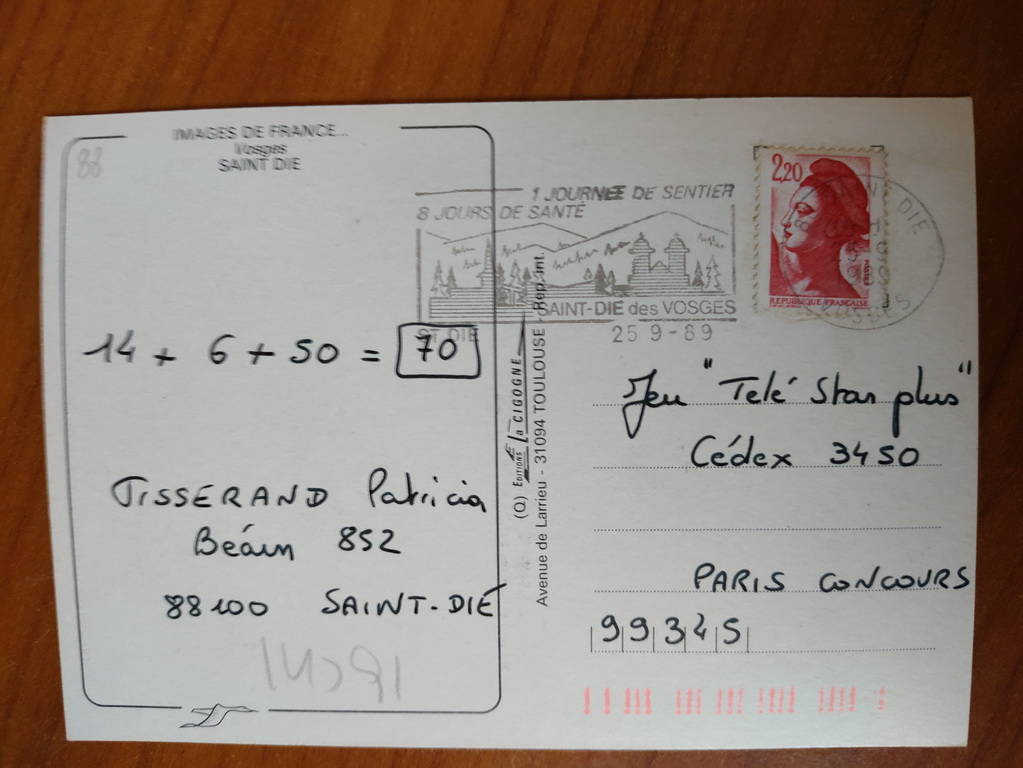 88
IMAGES DE FRANCE...
Vosges
SAINT DIE
14 + 6 + 50 = 70
TISSERAND Patricia
Béarn 852
88100 SAINT-DIÉ
1 JOURNEE DE SENTIER
8 JOURS DE SANTÉ
ST DIE
SAINT-DIE des VOSGES
25 9-89
(Q) EDITIONS la CIGOGNE
Avenue de Larrieu - 31094 TOULOUSE - Rep. int.
2,20
POSTES
REPUBLIQUE FRANCAISE
SAINT DIE
VOSGES
Jeu "Telé Star plus"
Cédex 3450
PARIS CONCOURS
99345